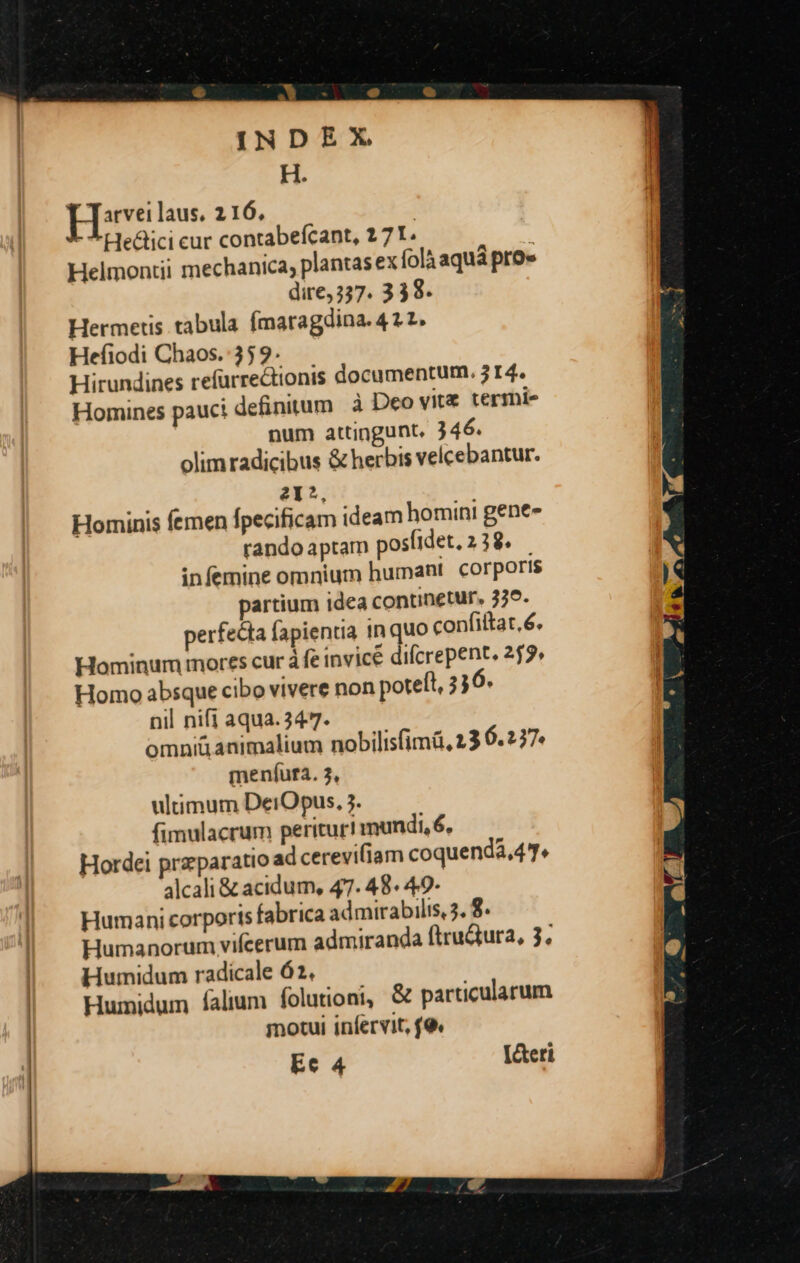 INDEX
H.
Harvei laus. 216.
Hectici cur contabeſcant, 271.
Helmontii mechanica, plantas ex ſolâ aquâ pro-
dire, 337. 338.
Hermetis tabula ſmaragdina. 422.
Heſiodi Chaos. 359.
Hirundines reſurrectionis documentum. 314.
Homines pauci definitum à Deo vitæ termi-
num attingunt. 346.
olim radicibus & herbis veſcebantur.
212,
Hominis ſemen ſpecificam ideam homini gene-
rando aptam posſidet. 238.
in ſemine omnium humani corporis
partium idea continetur. 330.
perfecta ſapientia in quo conſiſtat. 6.
Hominum mores cur à ſe invicē diſcrepent. 259.
Homo absque cibo vivere non poteſt, 336.
nil niſi aqua. 347.
omniū animalium nobilisſimū, 236. 237.
menſura. 3,
ultimum Dei Opus. 3.
ſimulacrum perituri mundi, 6.
Hordei præparatio ad cereviſiam coquendā, 47.
alcali & acidum, 47. 48. 49.
Humani corporis fabrica admirabilis, 3. 8.
Humanorum viſcerum admiranda ſtructura, 3.
Humidum radicale 62,
Humidum ſalium ſolutioni, & particularum
motui inſervit, 50.
Ee 4 Icteri